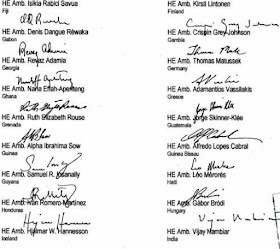 HE Amb. Isikia Rabici Savua
Fiji
HE Amb. Denis Dangue Réwaka
Gabon
HE Amb. Revaz Adamia
Georgia
HE Amb. Nana Effah-Apenteng
Ghana
HE Amb. Ruth Elizabeth Rouse
Grenada
HE Amb. Alpha Ibrahima Sow
Guinea
HE Amb. Samuel R. Insanally
Guyana
HE Amb. Ivan Romero-Martinez
Honduras
HE Amb. Hjálmar W. Hannesson
Iceland
HE Amb. Kirsti Lintonen
Finland
HE Amb. Crispin Grey Johnson
Gambia
HE Amb. Thomas Matussek
Germany
HE Amb. Adamantios Vassilakis
Greece
HE Amb. Jorge Skinner-Klée
Guatemala
HE Amb. Alfredo Lopes Cabral
Guinea Bissau
HE Amb. Léo Mérorès
Haiti
HE Amb. Gábor Bródi
Hungary
HE Amb. Vijay Nambiar
India